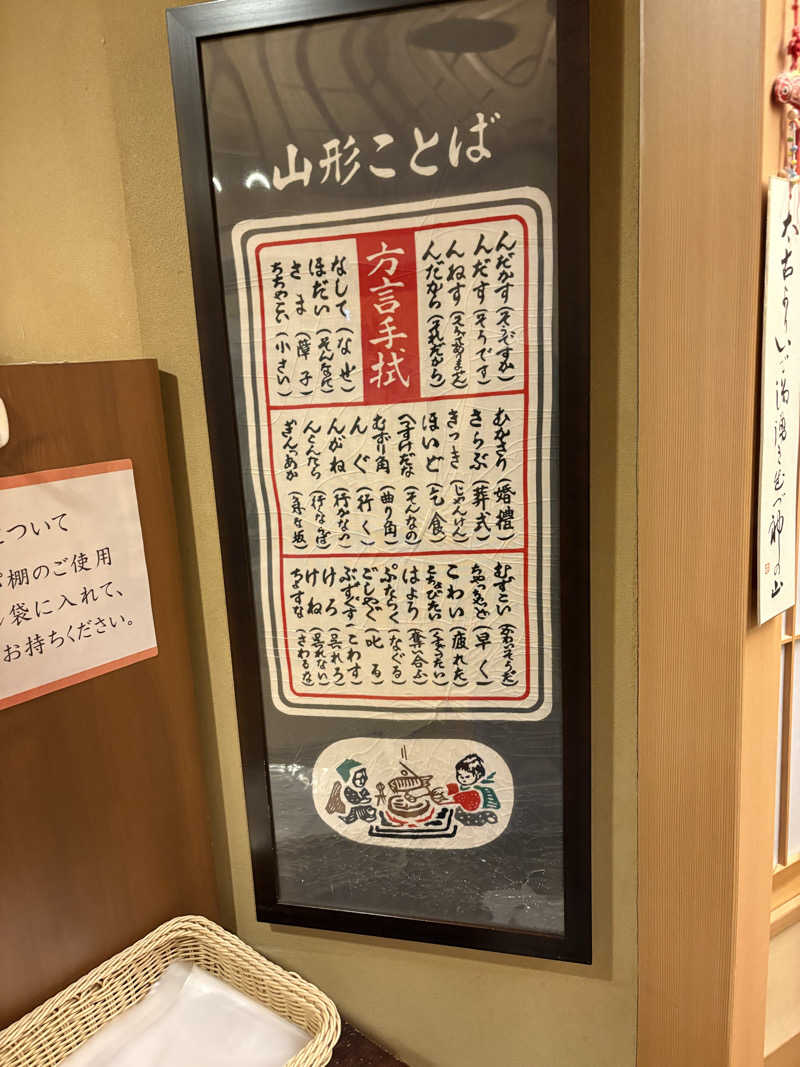 山形ことば
方言手拭
んだかす(そうですか)
んだす(そうです)
んねす(そうでありません)
んだから(それだから)
なして(なぜ)
ほだい(そんなに)
さま(障子)
ちちゃこい(小さい)
むかさり(婚禮)
さらぶ(葬式)
きっき(じゃんけん)
ほいど(乞食)
へすけだな(そんなの)
むずり角(曲り角)
んぐ(行く)
んがね(行かない)
んぐんたら(行くならば)
ぎんつあか(急な坂)
むずこい(かわいそうだ)
ちゃっちゃど(早く)
こわい(疲れた)
こちょびたい
はよろ(奪い合ふ)
ぷならぐ(なぐる)
ごしゃぐ(叱る)
ぶずぐす(こわす)
けろ(呉れろ)
けね(呉れない)
ちょすな(さわるな)
について
棚のご使用
袋に入れて、
お持ちください。
太古より
の山